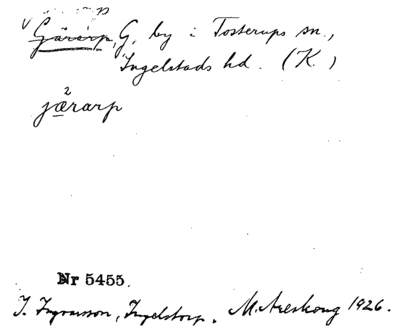 v Gärarp, G, by i Tosterups sn.,
Ingelstads hd. (K.)
2
jærarp
Nr 5455.
I. Ingvarsson, Ingelstorp. M. Areskoug 1926.